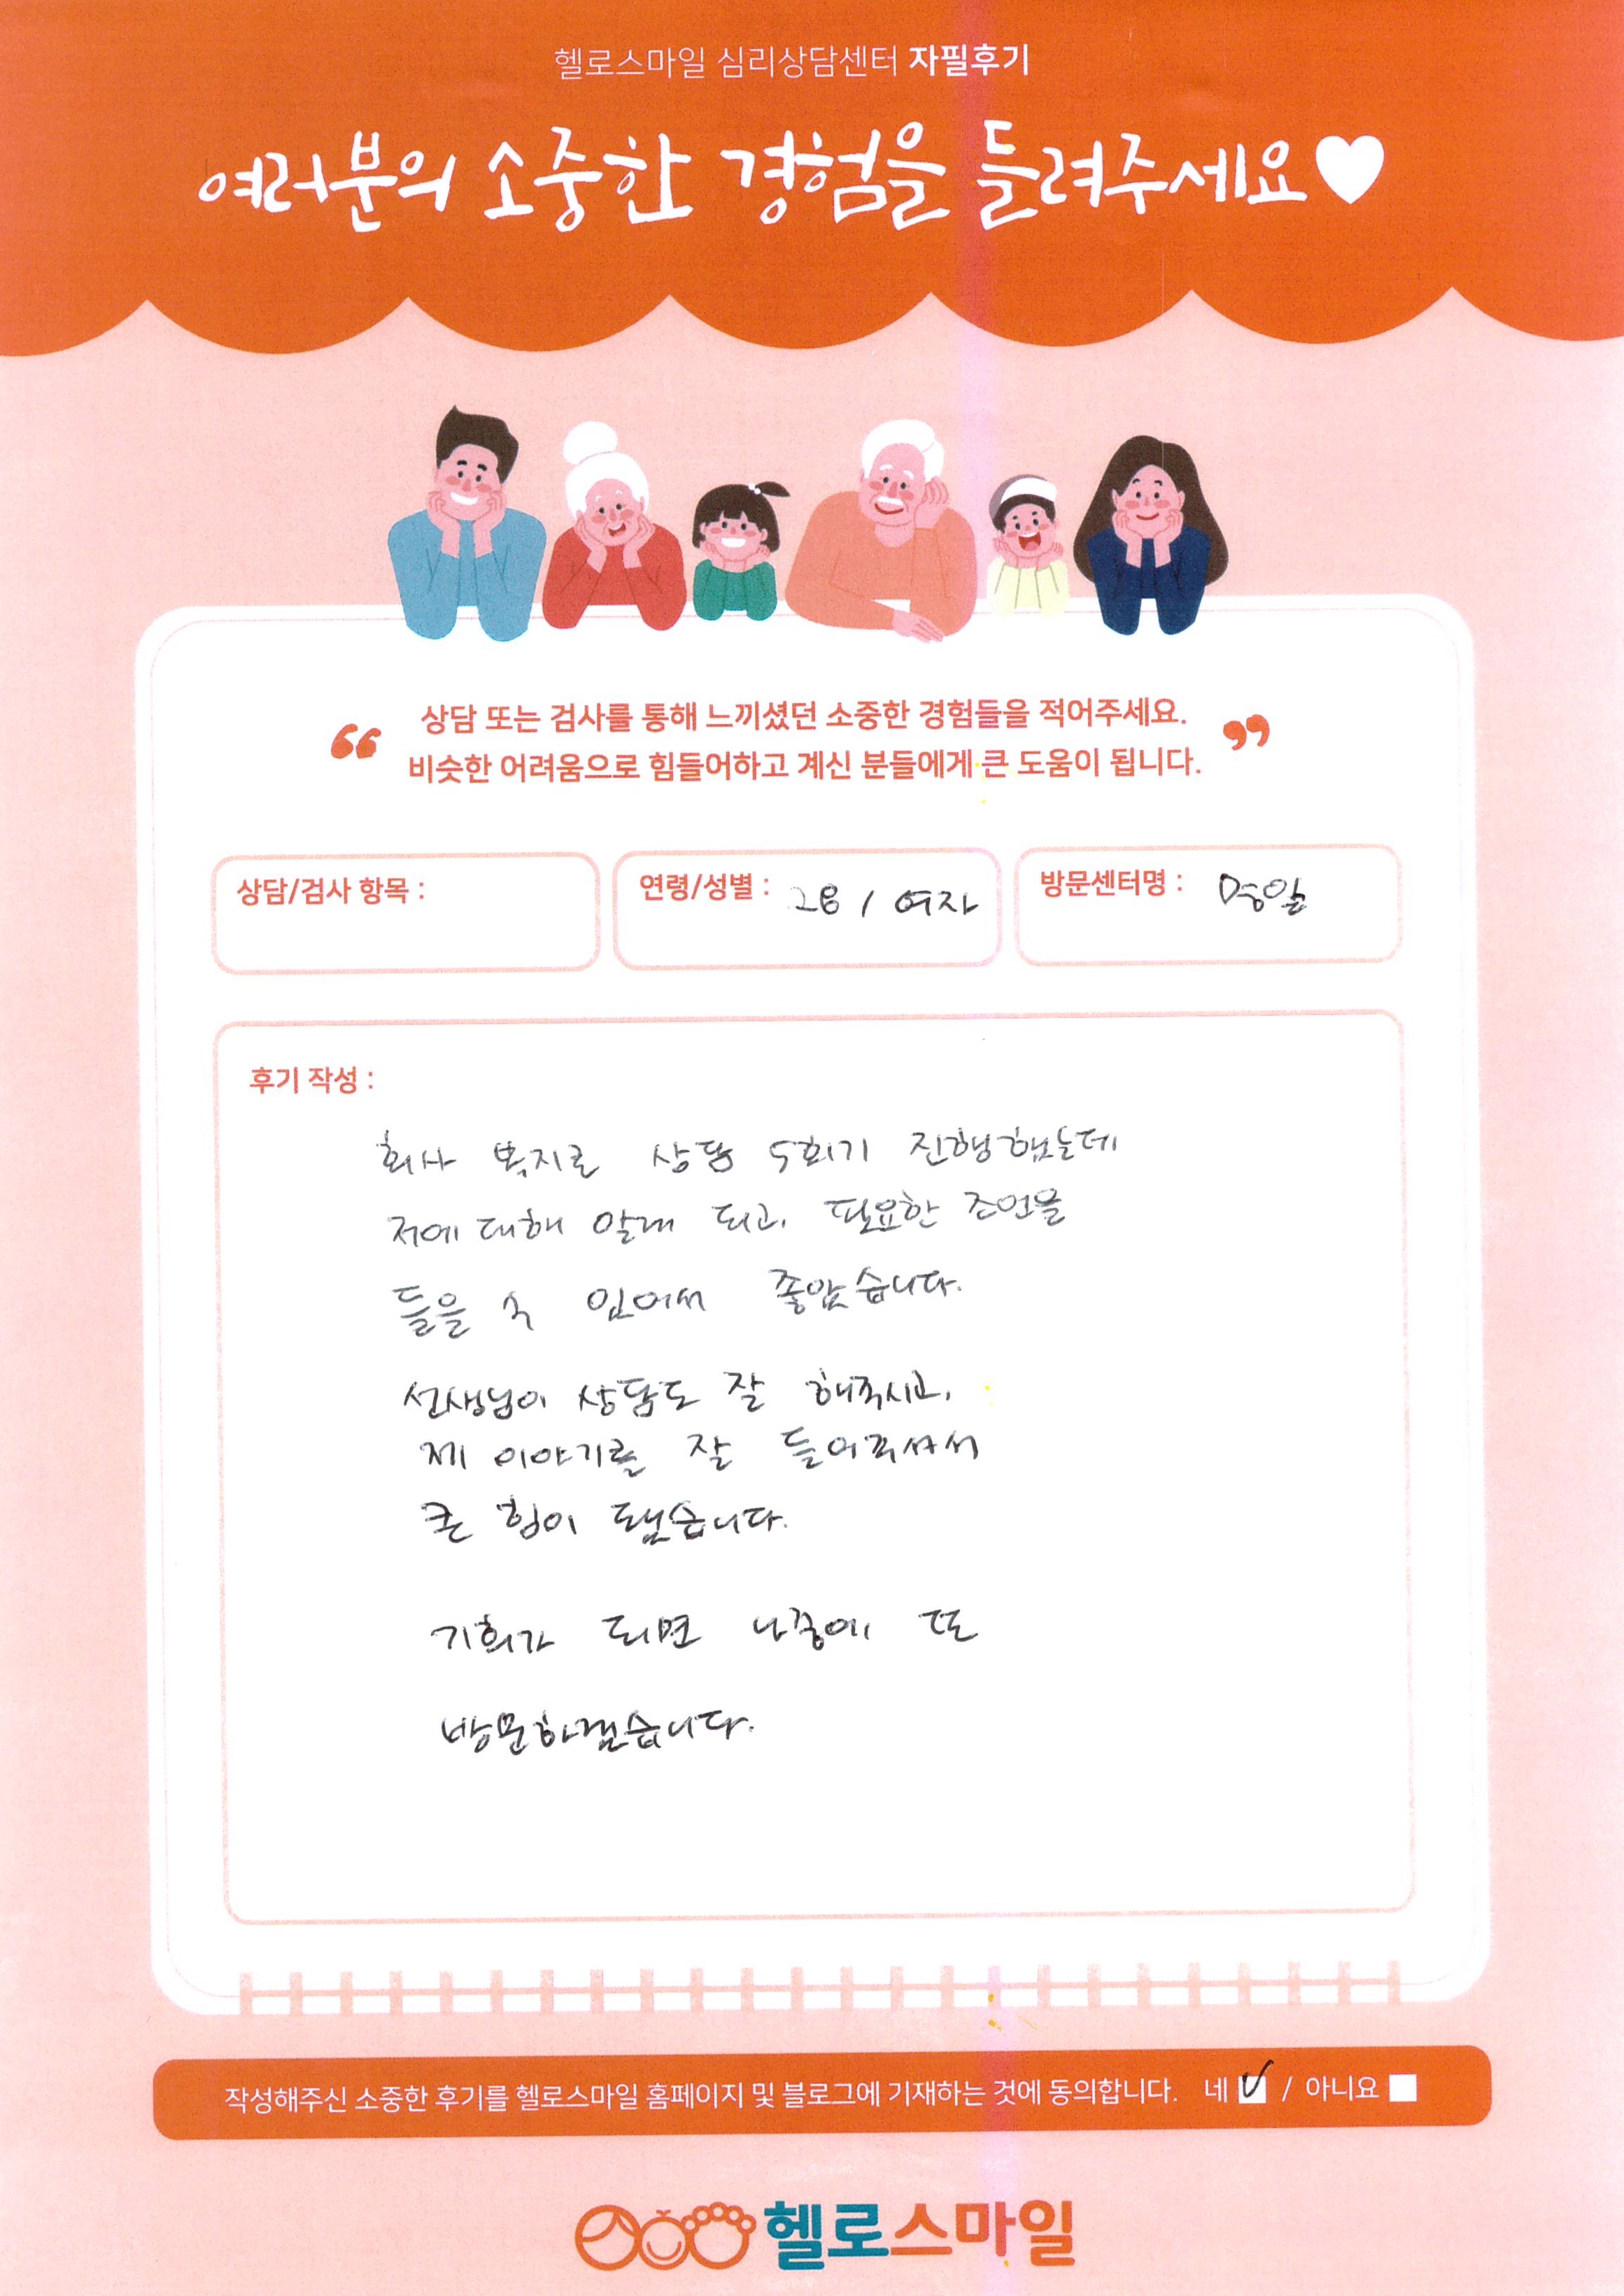 헬로스마일 심리상담센터 자필후기
여러분의 소중한 경험을 들려주세요♥
“ 상담 또는 검사를 통해 느끼셨던 소중한 경험들을 적어주세요. ”
비슷한 어려움으로 힘들어하고 계신 분들에게 큰 도움이 됩니다.
상담/검사 항목 :
연령/성별 : 28 / 여자
방문센터명 :
후기 작성 :
회사 복지로 상담 5회기 진행했는데
저에 대해 알게 되고, 필요한 조언을
들을 수 있어서 좋았습니다.
선생님이 상담도 잘 해주시고,
제 이야기를 잘 들어주셔서
큰 힘이 됐습니다.
기회가 되면 나중에 또
방문하겠습니다.
작성해주신 소중한 후기를 헬로스마일 홈페이지 및 블로그에 기재하는 것에 동의합니다. 네 ✓ / 아니요
헬로스마일